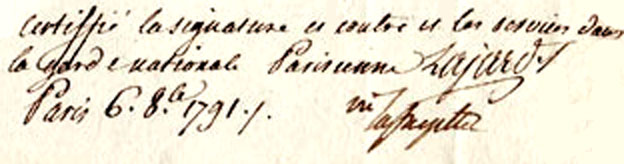 certiffié la signature ci contre et les services dans
la garde nationale Parisienne Lajard
Paris 6. 8.bre 1791./. vu lafayette